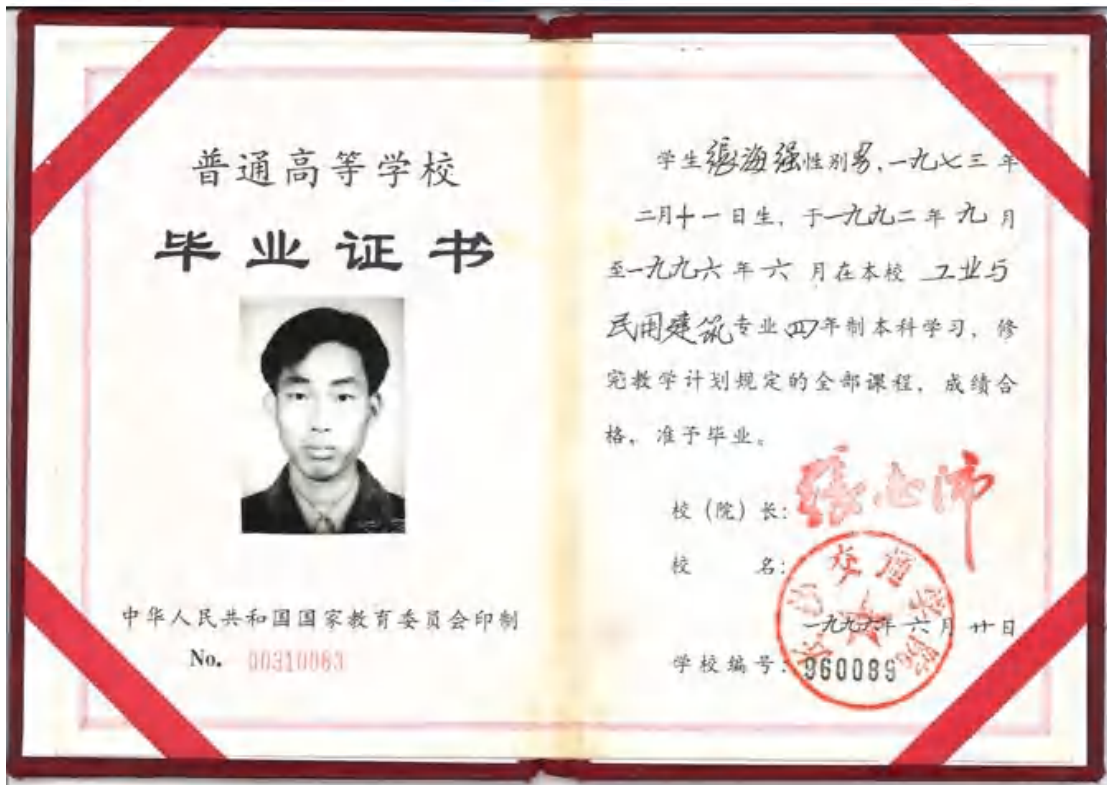 普通高等学校
毕业证书
中华人民共和国国家教育委员会印制
No. 00310083
学生张海强性别男,一九七三年
二月十一日生,于一九九二年九月
至一九九六年六月在本校 工业与
民用建筑专业四年制本科学习,修
完教学计划规定的全部课程,成绩合
格,准予毕业。
校(院)长:
校 名:
交通学院
一九九六年六月廿日
学校编号:960089